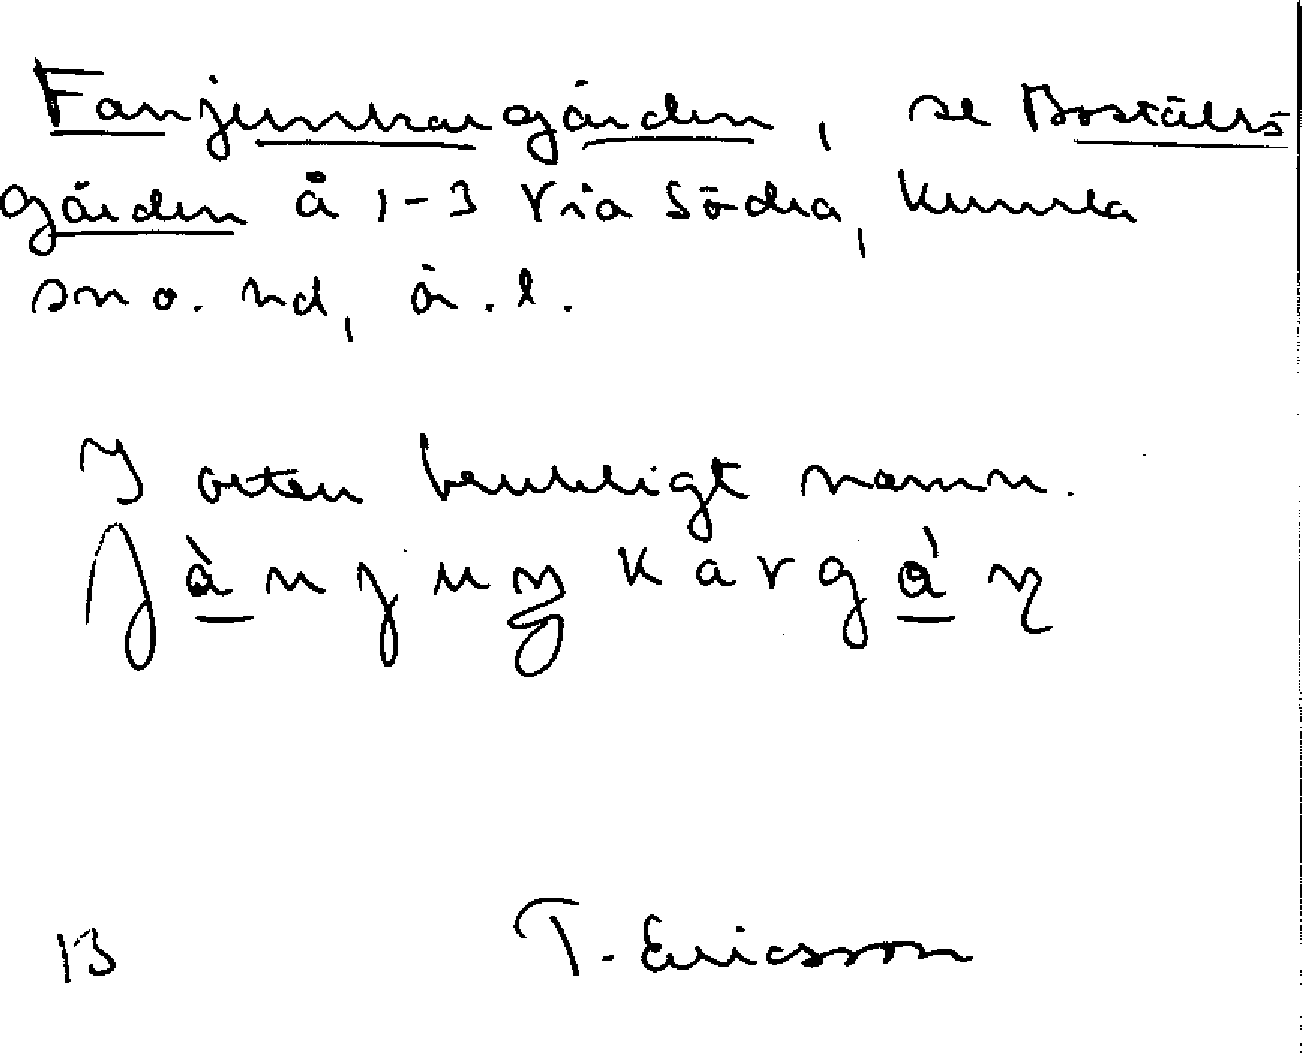 Fanjunkargården, se Boställs-
gården å 1-3 Via Södra, Kumla
sn o. hd, ör. l.
I orten brukligt namn.
fànjuŋkargá̱ɳ
13 T. Ericsson